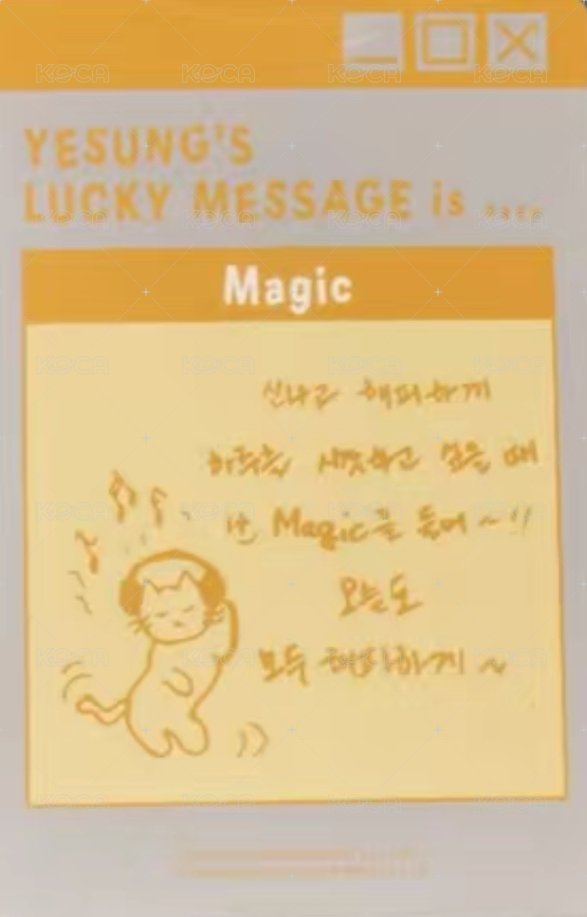 YESUNG'S
LUCKY MESSAGE is ....
Magic
신나고 해피하게
하루를 시작하고 싶을 때
난 Magic을 들어~!!
오늘도
모두 해피하게~
KOCA